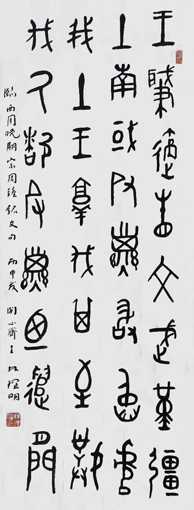 王肇遹省文武堇疆
土南或𠬝孳敢臽虐
我土王敦伐其至撲
伐氒都𠬝孳廼遣閒
臨西周晚期宗周鐘銘文句 丙申 齋主 明